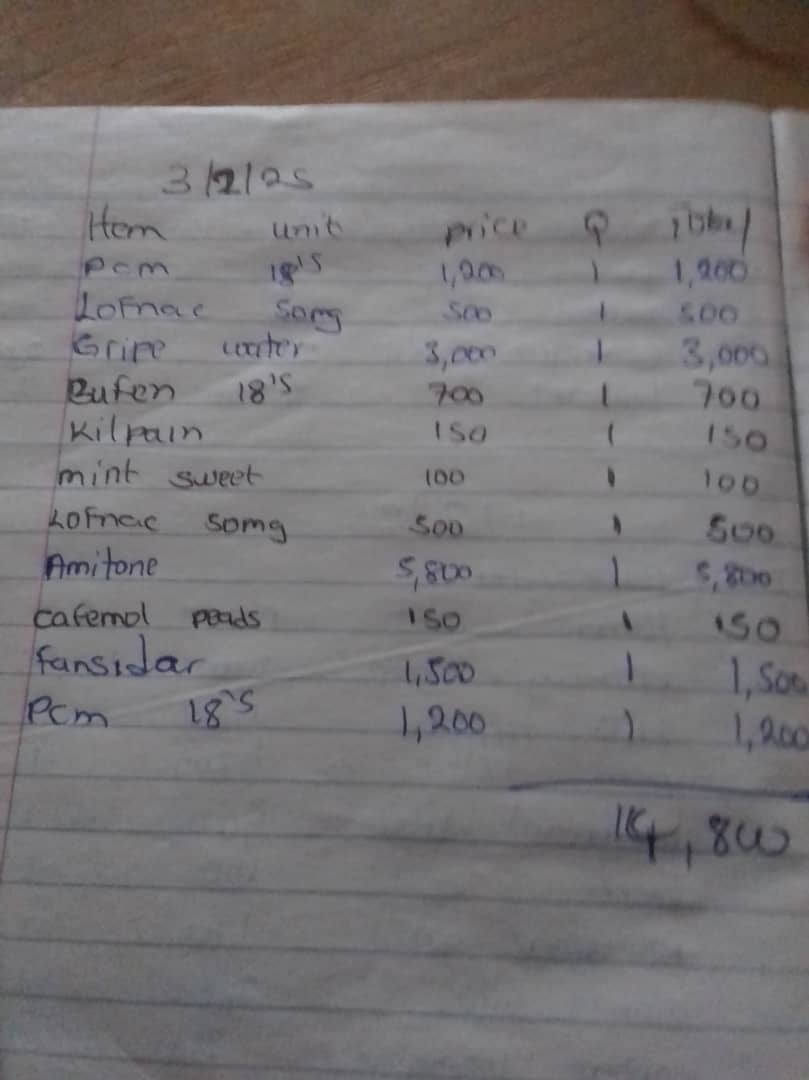 3/2/25
Item unit price Q total
pcm 18's 1,200 1 1,200
Lofnac 50mg 500 1 500
Gripe water 3,000 1 3,000
Bufen 18's 700 1 700
Kilpain 150 1 150
mint sweet 100 1 100
Lofnac 50mg 500 1 500
Amitone 5,800 1 5,800
cafemol peads 150 1 150
fansidar 1,500 1 1,500
Pcm 18's 1,200 1 1,200
14,800